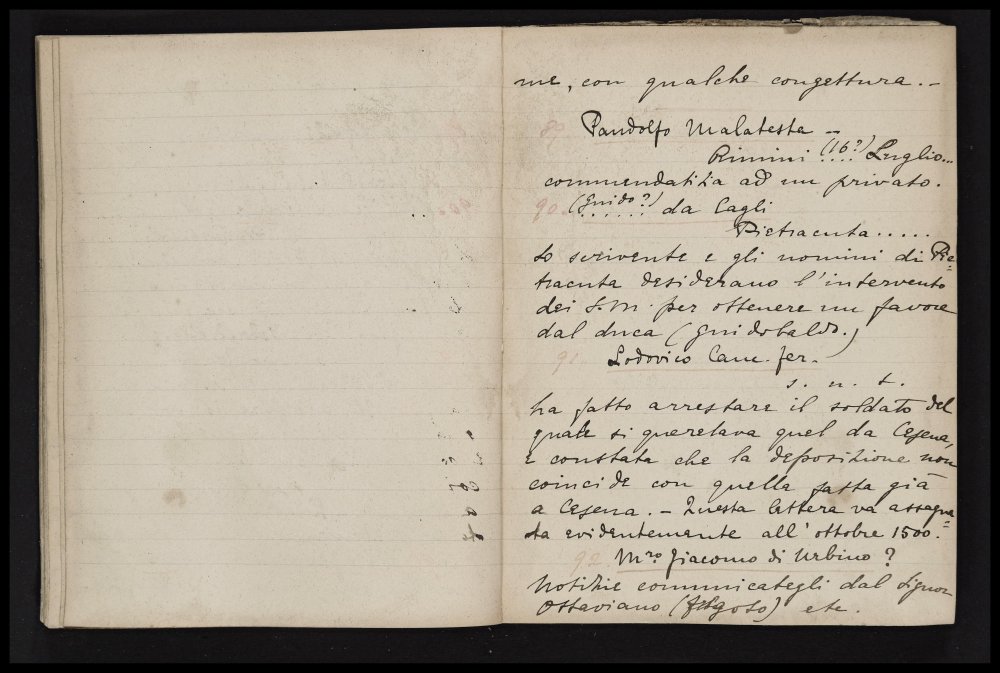 me, con qualche congettura. -
89
Pandolfo Malatesta -
Rimini (16?) .... Luglio...
commendatizia ad un privato.
90. (Guido?) ....... da Cagli
Pietracuta .....
Lo scrivente e gli uomini di Pie=
tracuta desiderano l'intervento
dei S.M. per ottenere un favore
dal duca (Guidobaldo.)
91. Lodovico Canc. fer.
s. n. t.
ha fatto arrestare il soldato del
quale si querelava quel da Cesena,
e constata che la deposizione non
coincide con quella fatta già
a Cesena. - Questa lettera va assegna=
ta evidentemente all'ottobre 1500.
92. Mro Giacomo di Urbino?
Notizie communicategli dal Signor
Ottaviano (Fregoso) etc.